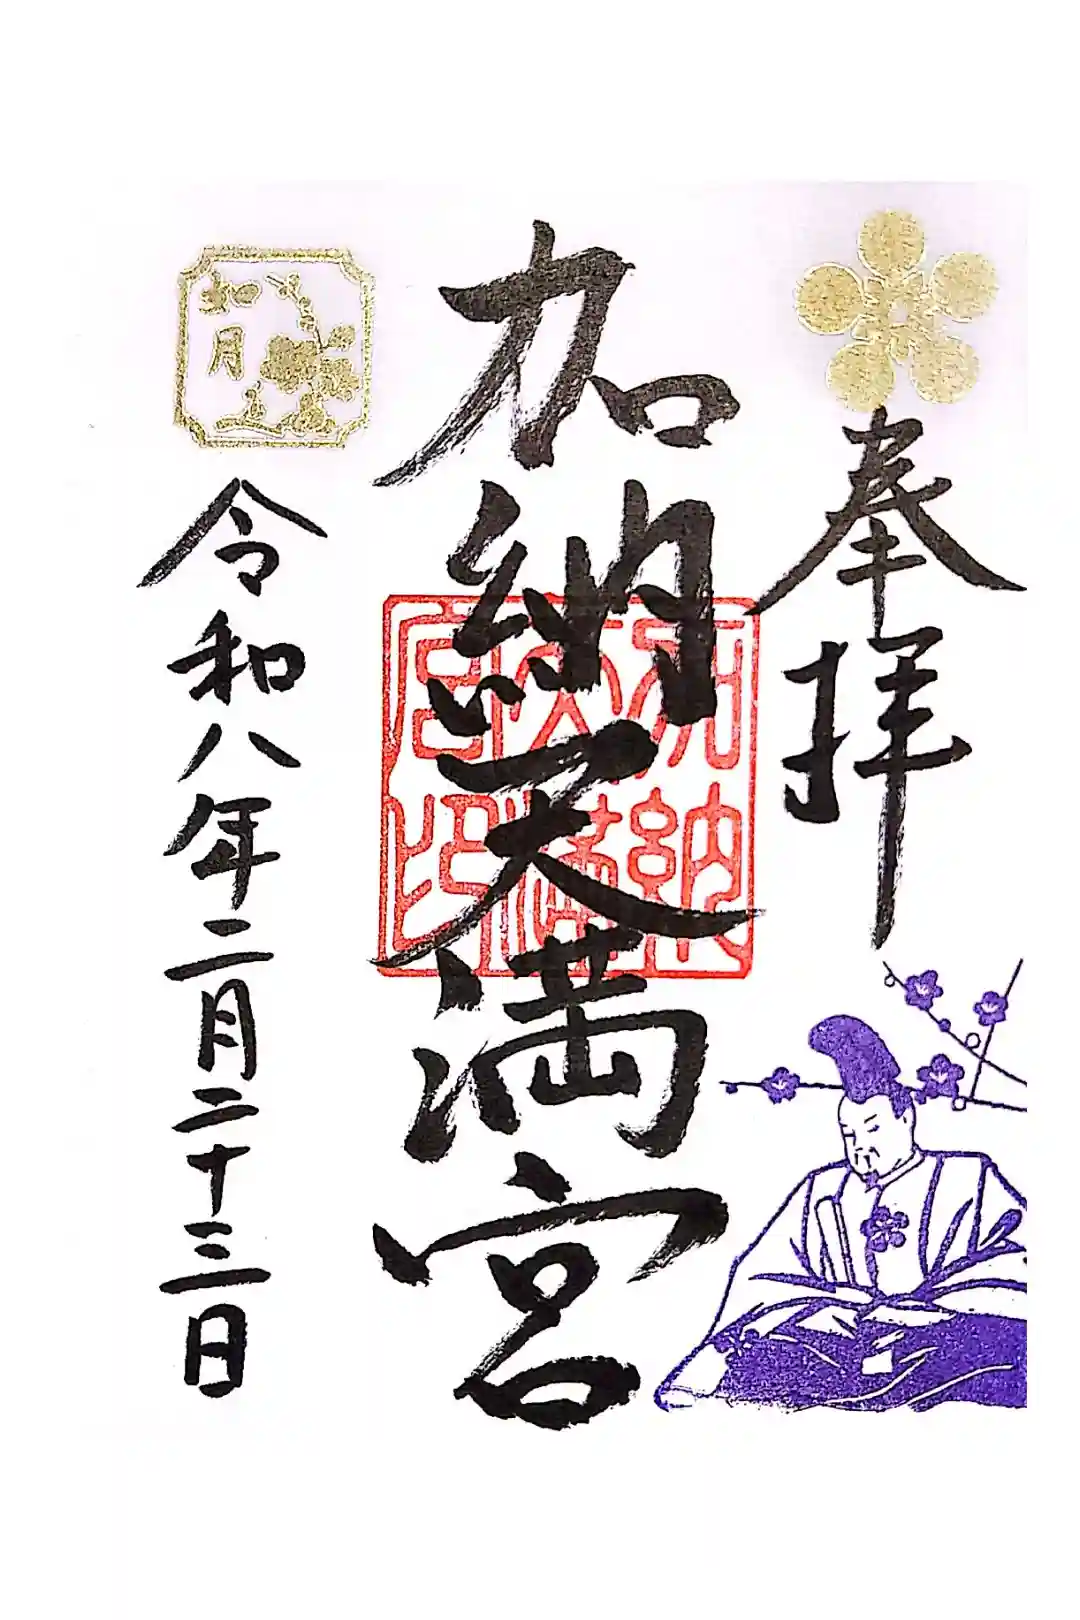 奉拝
加納天満宮
加納
天満
宮印
如月
令和八年二月二十三日